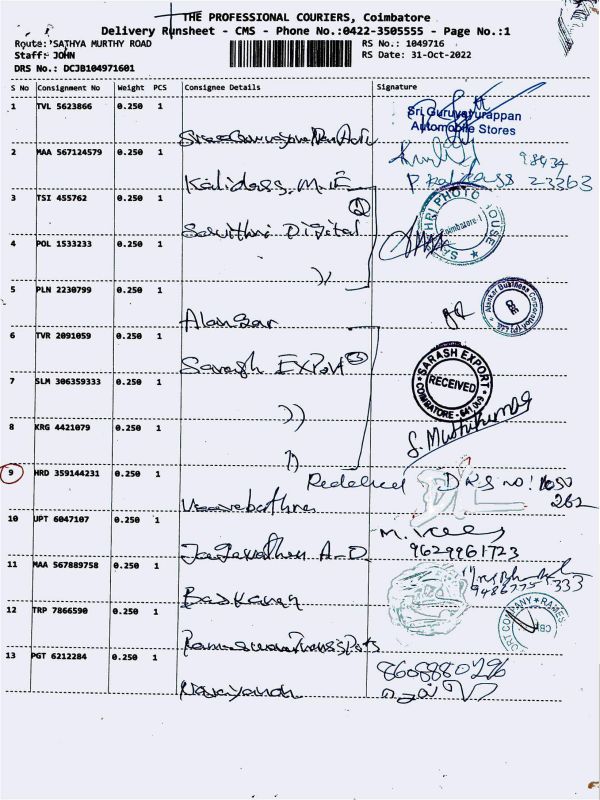 THE PROFESSIONAL COURIERS, Coimbatore
Delivery Runsheet - CMS - Phone No.:0422-3505555 - Page No.:1
Route: SATHYA MURTHY ROAD
Staff: JOHN
DRS No.: DCJB104971601
RS No.: 1049716
RS Date: 31-Oct-2022
S No Consignment No Weight PCS Consignee Details Signature
1 TVL 5623866 0.250 1
Sri Guruvayurappan
Automobile Stores
2 MAA 567124579 0.250 1
Kalidass. M. E
98434
P. Kalidass 23363
3 TSI 455762 0.250 1
Savithri Digital
SAVITHRI PHOTO HOUSE
Coimbatore-1
4 POL 1533233 0.250 1
5 PLN 2230799 0.250 1
Alankar
Alankar Business Corporation (P) Ltd
6 TVR 2091059 0.250 1
Sarash Export
SARASH EXPORT
RECEIVED
COIMBATORE - 641 009
7 SLM 306359333 0.250 1
8 KRG 4421079 0.250 1
9 HRD 359144231 0.250 1
DRS no: 1050
262
10 UPT 6047107 0.250 1
M.
9629961723
11 MAA 567889758 0.250 1
Baskaran
333
12 TRP 7866590 0.250 1
CBE
13 PGT 6212284 0.250 1
8608880296
Narayanan